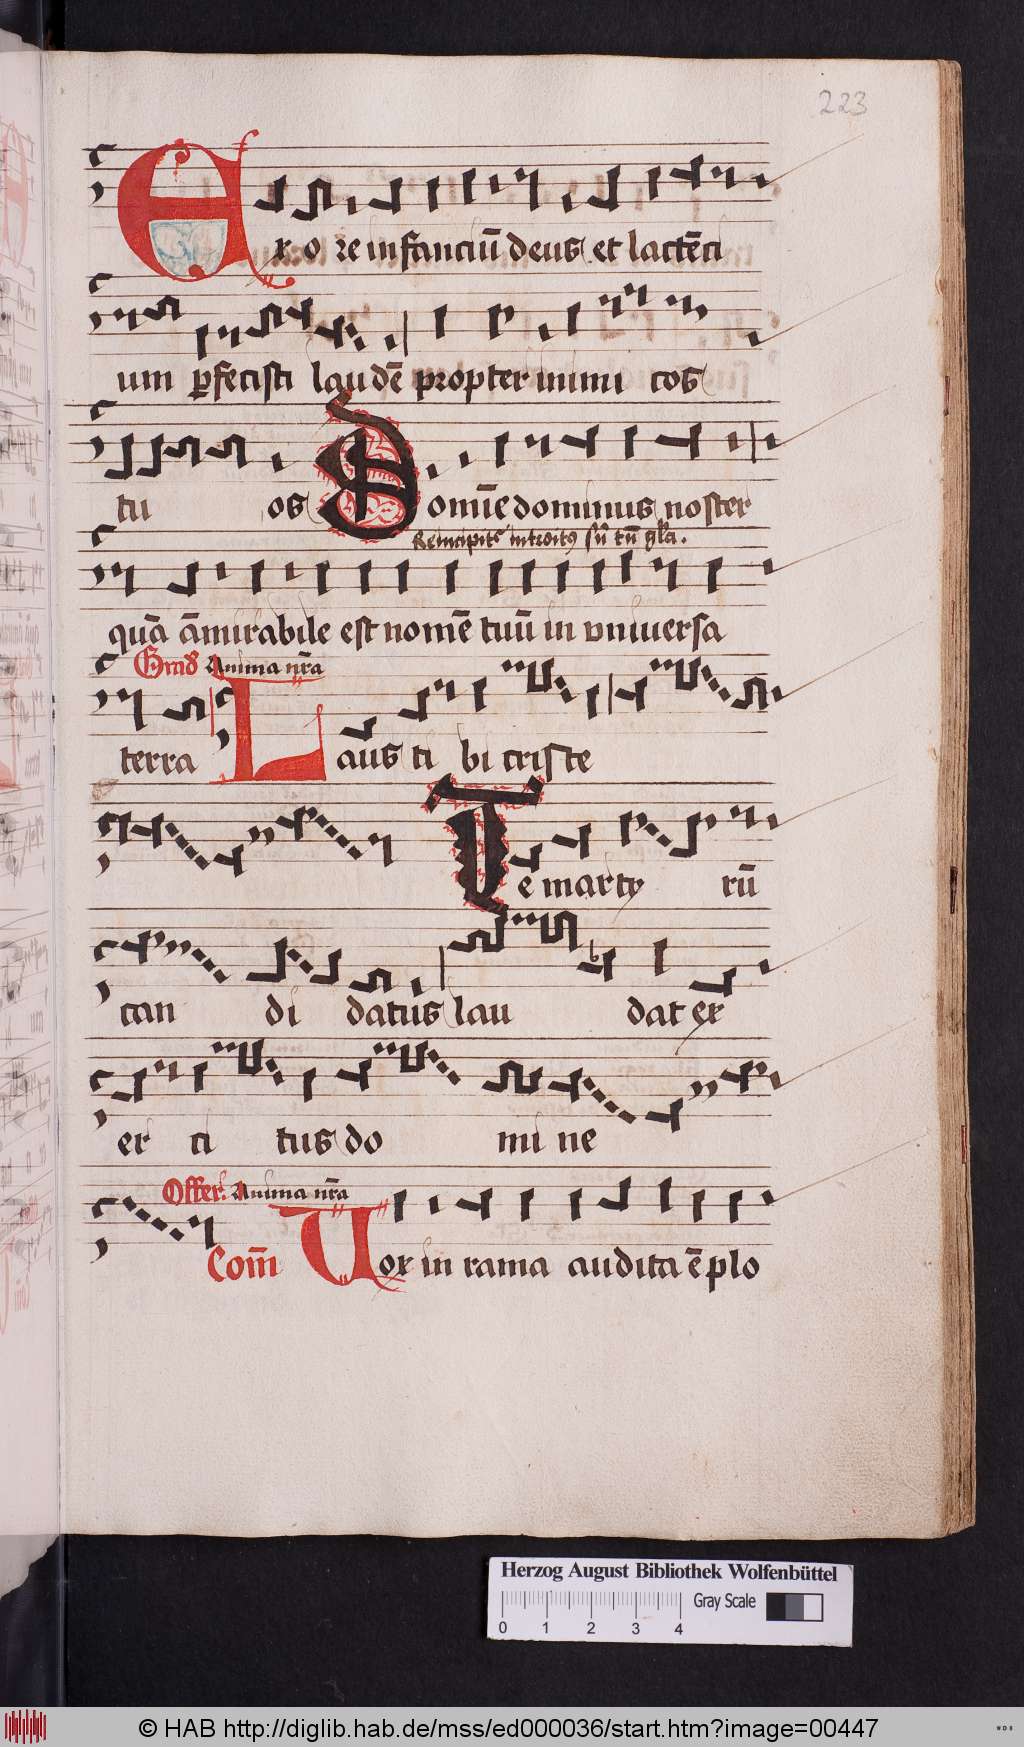 223
Ex o re infanciū deus et lactēci
um ꝑfecisti laudē propter inimi cos
tu os Domīe dominus noster
Reincipit᷑ introitꝰ sn̄ tn̄ gl̄a.
quā āmirabile est nomē tuū in vniuersa
Grad Anima nr̄a
terra Laus ti bi criste
Te martỳ rū
can di datus lau dat ex
er ci tus do mi ne
Offer. Anima nr̄a
Com̄ Vox in rama audita ē plo
Herzog August Bibliothek Wolfenbüttel
Gray Scale
0 1 2 3 4
© HAB http://diglib.hab.de/mss/ed000036/start.htm?image=00447